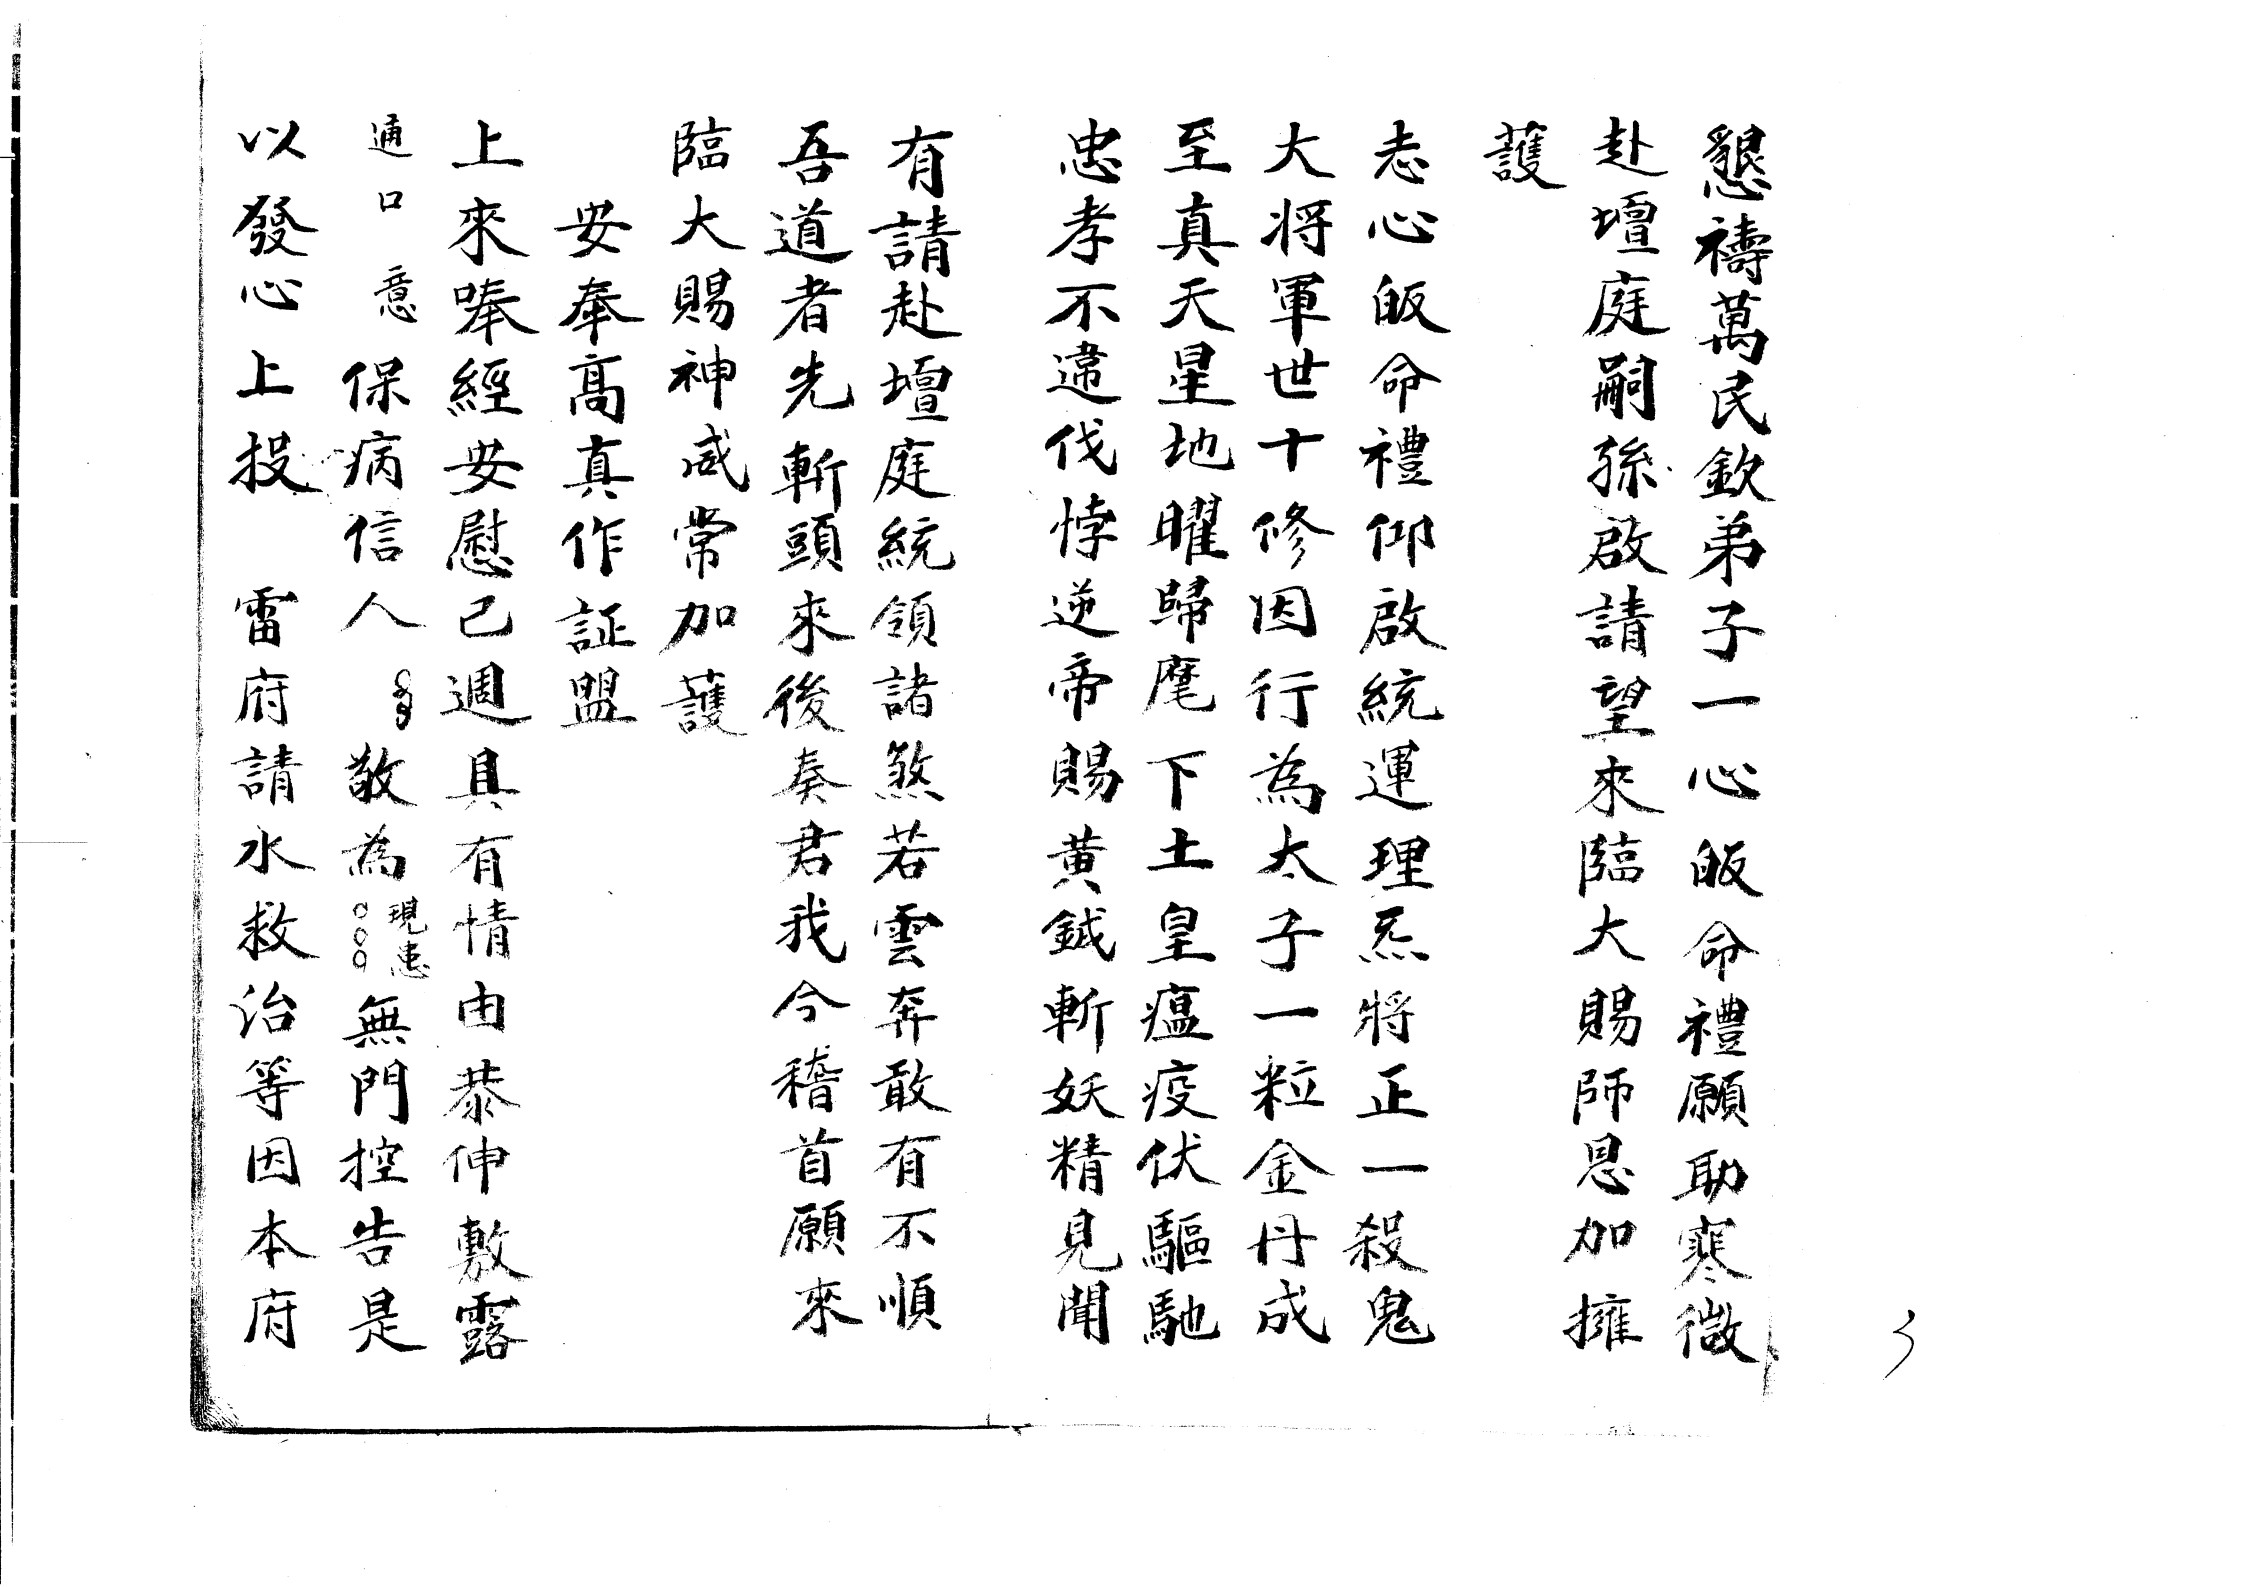 懇禱萬民欽弟子一心皈命禮願助寒微
赴壇庭嗣孫啟請望來臨大賜師恩加擁
護
志心皈命禮仰啟統運理炁將正一殺鬼
大將軍世十修因行為太子一粒金丹成
至真天星地曜歸麾下土皇瘟疫伏驅馳
忠孝不違伐悖逆帝賜黃鉞斬妖精見聞
有請赴壇庭統領諸煞若雲奔敢有不順
吾道者先斬頭來後奏君我今稽首願來
臨大賜神威常加護
安奉高真作証盟
上來唪經安慰已週具有情由恭伸敷露
通口意保病信人 敬為現患○○○無門控告是
以發心上投 雷府請水救治等因本府